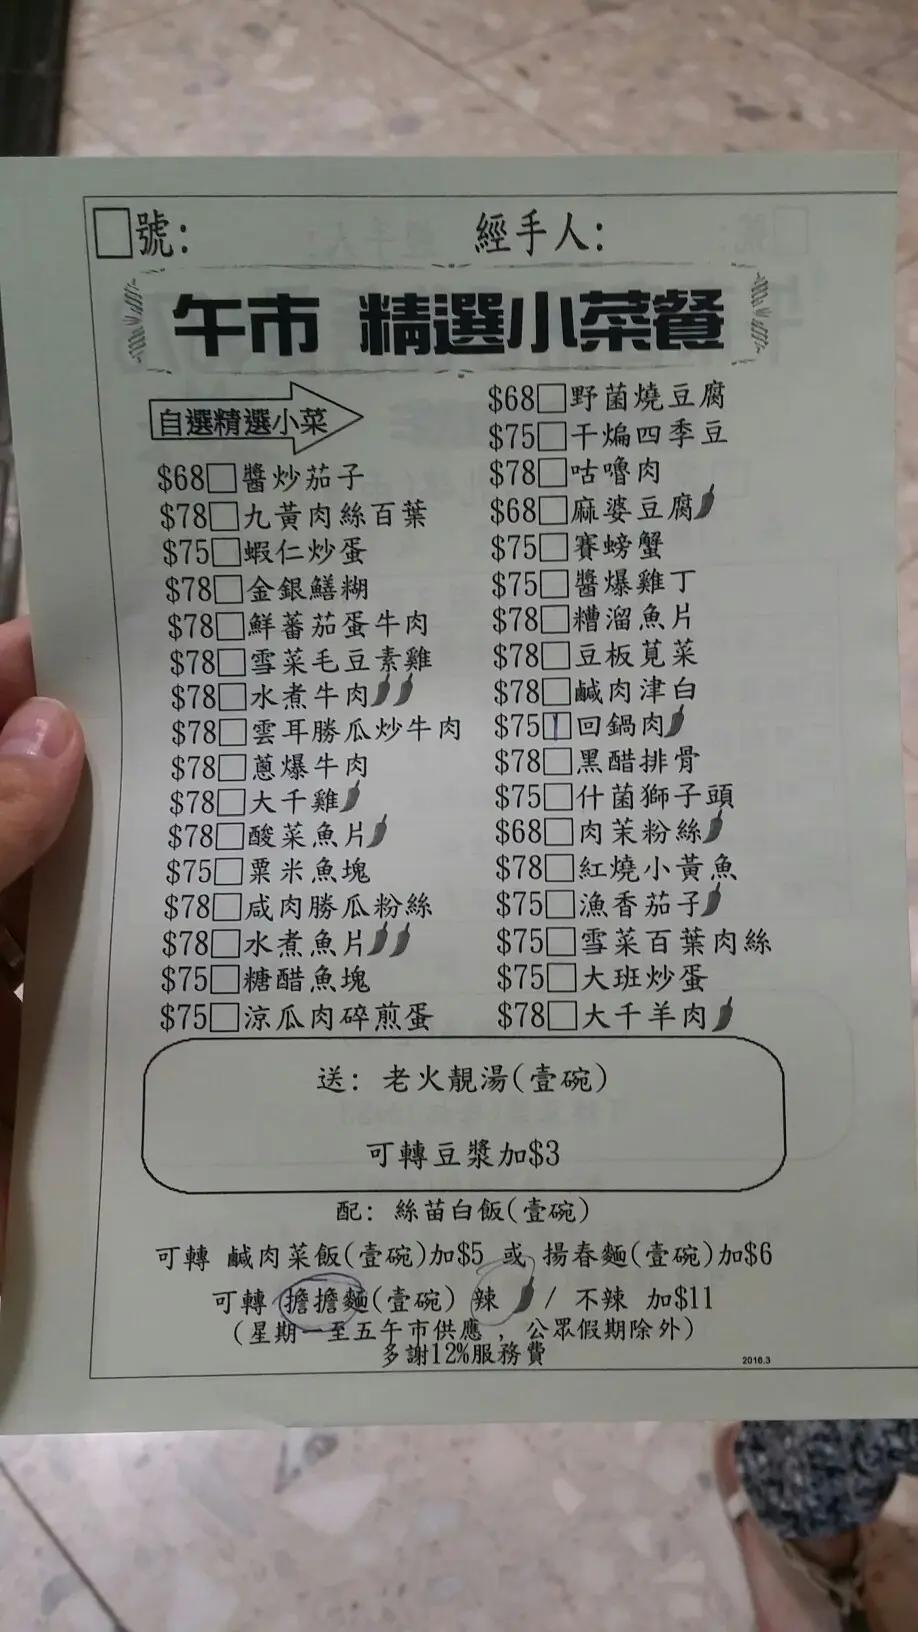 □號: 經手人:
午市 精選小菜餐
自選精選小菜
$68□醬炒茄子
$78□九黃肉絲百葉
$75□蝦仁炒蛋
$78□金銀鱔糊
$78□鮮蕃茄蛋牛肉
$78□雪菜毛豆素雞
$78□水煮牛肉
$78□雲耳勝瓜炒牛肉
$78□蔥爆牛肉
$78□大千雞
$78□酸菜魚片
$75□粟米魚塊
$78□咸肉勝瓜粉絲
$78□水煮魚片
$75□糖醋魚塊
$75□涼瓜肉碎煎蛋
$68□野菌燒豆腐
$75□干煸四季豆
$78□咕嚕肉
$68□麻婆豆腐
$75□賽螃蟹
$75□醬爆雞丁
$78□糟溜魚片
$78□豆板莧菜
$78□鹹肉津白
$75□回鍋肉
$78□黑醋排骨
$75□什菌獅子頭
$68□肉茉粉絲
$78□紅燒小黃魚
$75□漁香茄子
$75□雪菜百葉肉絲
$75□大班炒蛋
$78□大千羊肉
送: 老火靚湯(壹碗)
可轉豆漿加$3
配: 絲苗白飯(壹碗)
可轉 鹹肉菜飯(壹碗)加$5 或 揚春麵(壹碗)加$6
可轉 擔擔麵(壹碗) 辣 / 不辣 加$11
(星期一至五午市供應 , 公眾假期除外)
多謝12%服務費
2016.3